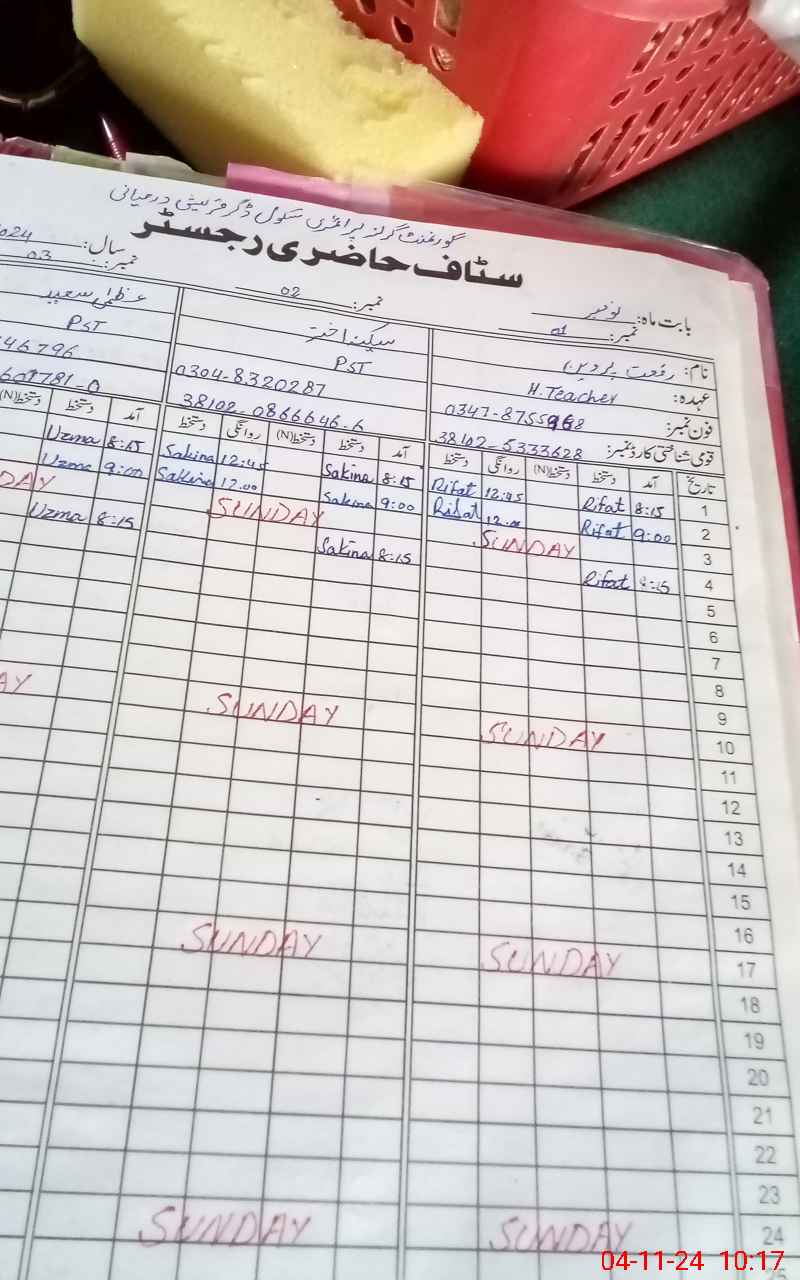 گورنمنٹ گرلز پرائمری سکول ڈگر قریشی درمیانی
سٹاف حاضری رجسٹر
بابت ماہ: نومبر
سال: 2024
نمبر: 01
نمبر: 02
نمبر: 03
نام: رفعت پروین
سکینہ اختر
عظمیٰ سعید
عہدہ: H.Teacher
PST
PST
فون نمبر: 0347-8755968
0304-8320287
46796
قومی شناختی کارڈ نمبر: 38102-5333628
38102-0866646-6
601781-0
تاریخ آمد دستخط دستخط(N) روانگی دستخط آمد دستخط دستخط(N) روانگی دستخط آمد دستخط دستخط(N)
1 8:15 Rifat 12:45 Rifat 8:15 Sakina 12:45 Sakina 8:15 Uzma
2 9:00 Rifat 12.00 Rifat 9:00 Sakina 12.00 Sakina 9:00 Uzma
3 SUNDAY SUNDAY DAY
4 8:15 Rifat 8:15 Sakina 8:15 Uzma
5
6
7
8
9
10 SUNDAY SUNDAY AY
11
12
13
14
15
16
17 SUNDAY SUNDAY
18
19
20
21
22
23
24 SUNDAY SUNDAY
25
04-11-24 10:17